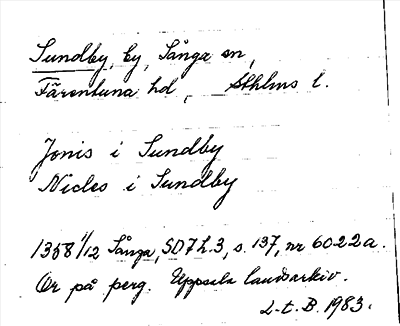 Sundby, by, Sånga sn,
Färentuna hd, Sthlms l.
Jonis i Sundby
Nicles i Sundby
1358 1/12 Sånga, SD 7 h. 3, s. 137, nr 6022a.
Or på perg. Uppsala landsarkiv.
L-t. B. 1983.